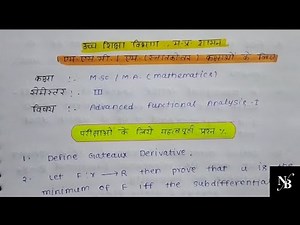 उच्च शिक्षा विभाग, म.प्र. शासन
एम.एस.सी / एम.ए (स्नातकोत्तर) कक्षाओं के लिये
कक्षा :- M.Sc / M.A. (mathematics)
सेमेस्टर :- III
विषय :- Advanced functional Analysis-I
परीक्षाओं के लिये महत्वपूर्ण प्रश्न :-
1. Define Gateaux Derivative.
2. Let F: X → R then prove that u is the
minimum of F iff the subdifferential
NB